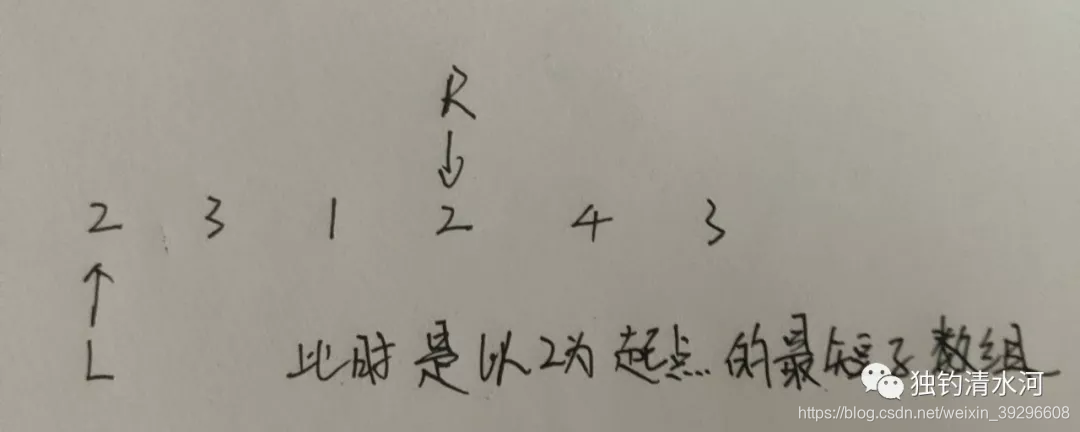 R
↓
2 3 1 2 4 3
↑
L 此时是以2为起点的最短子数组
独钓清水河
https://blog.csdn.net/weixin_39296608